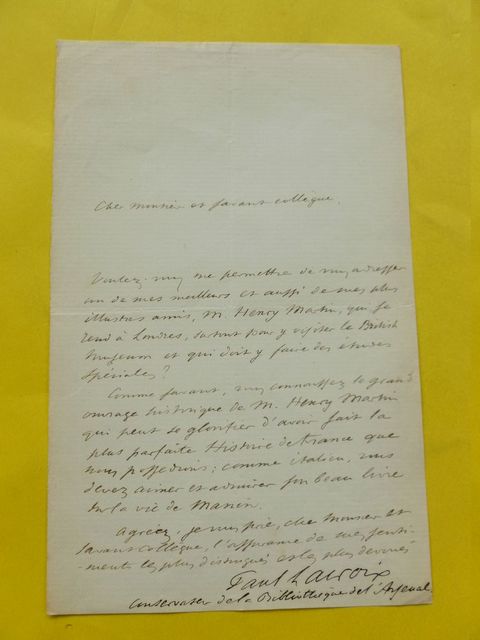 Cher monsieur et savant collègue,
Voulez-vous me permettre de vous adresser
un de mes meilleurs et aussi de mes plus
illustres amis, M. Henry Martin, qui se
rend à Londres, surtout pour y visiter le British
Museum et qui doit y faire des études
spéciales?
Comme savant, vous connoissez le grand
ouvrage historique de M. Henry Martin
qui peut se glorifier d'avoir fait la
plus parfaite Histoire de France que
nous possedions; comme italien, vous
devez aimer et admirer son beau livre
sur la vie de Manin.
Agréez, je vous prie, cher monsieur et
savant collègue, l'assurance de mes senti-
-ments les plus distingués et les plus dévoués
Paul Lacroix
conservateur de la Bibliothèque de l'Arsenal